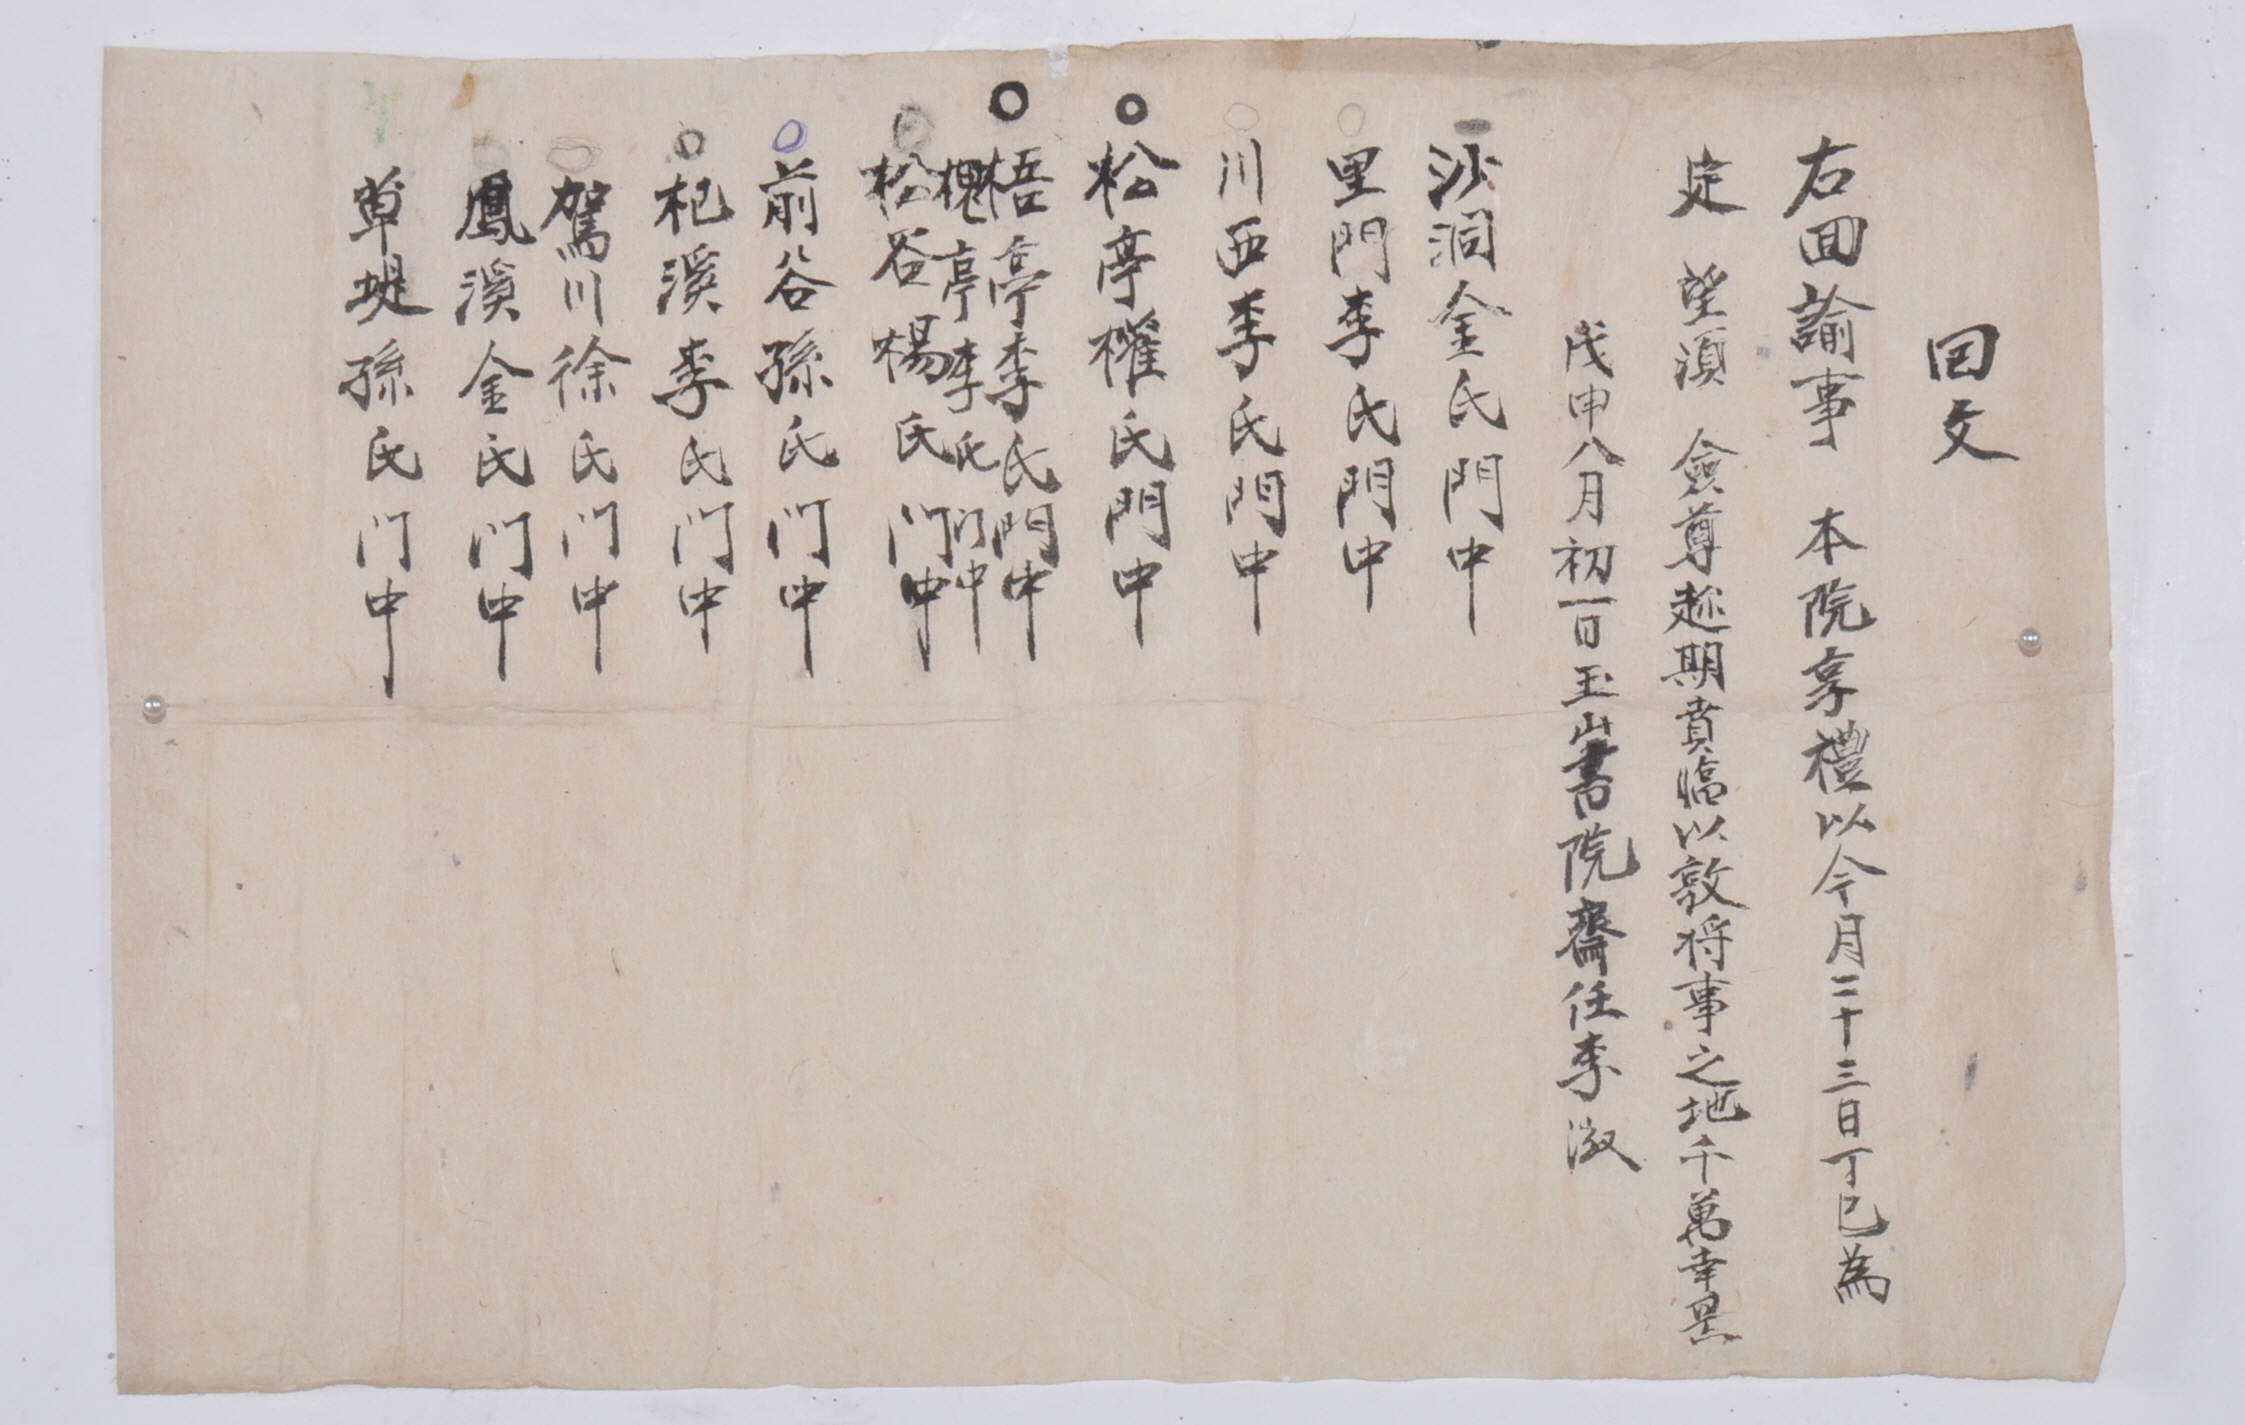 回文
右回諭事 本院享禮以今月二十三日丁巳為
定 望須 僉尊趂期賁臨以敦將事之地千萬幸甚
戊申八月初一日玉山書院齋任李潋
沙洞金氏門中
里門李氏門中
川西李氏門中
松亭權氏門中
梧亭李氏門中
槐亭李氏门中
松谷楊氏门中
前谷孫氏门中
杞溪李氏门中
駕川徐氏门中
鳳溪金氏门中
草堤孫氏门中